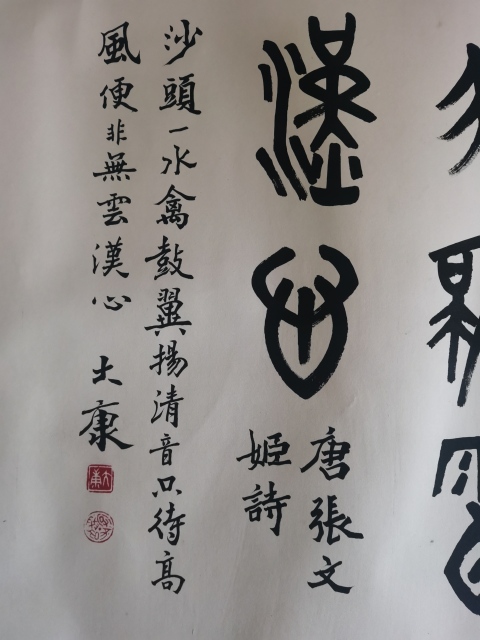 漢心
唐張文
姬詩
沙頭一水禽鼓翼揚清音只待高
風便非無雲漢心
大康